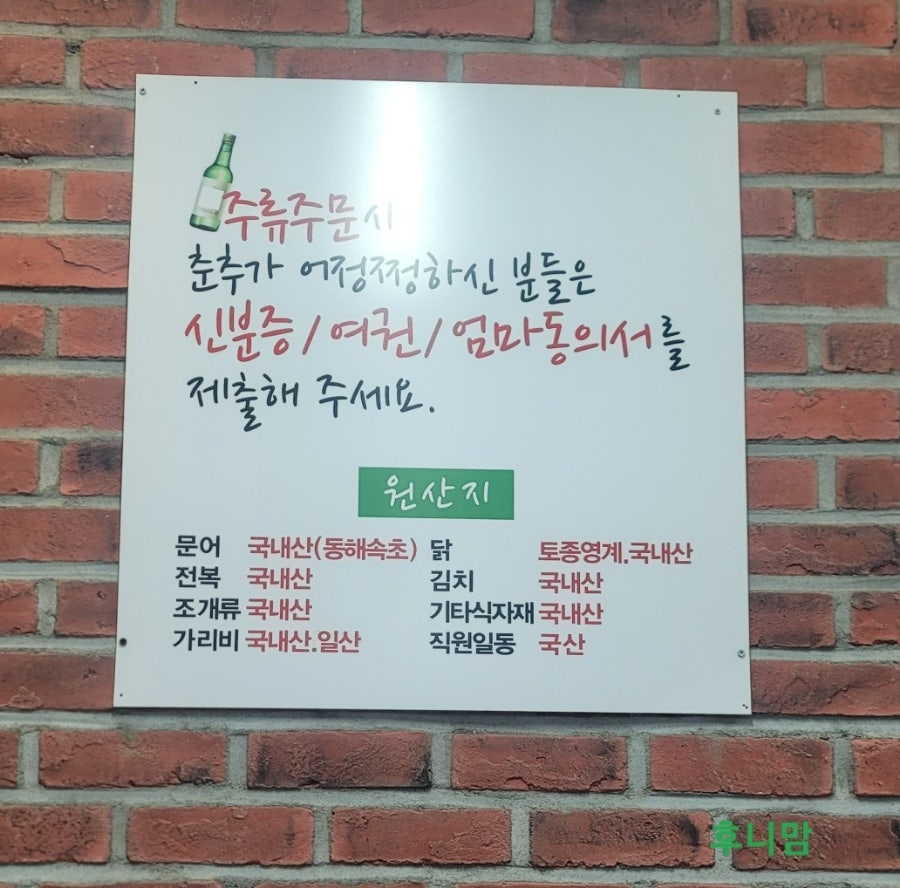 주류주문시
춘추가 어정쩡하신 분들은
신분증/여권/엄마동의서를
제출해 주세요.
원산지
문어 국내산(동해속초) 닭 토종영계.국내산
전복 국내산 김치 국내산
조개류 국내산 기타식자재 국내산
가리비 국내산.일산 직원일동 국산
후니맘